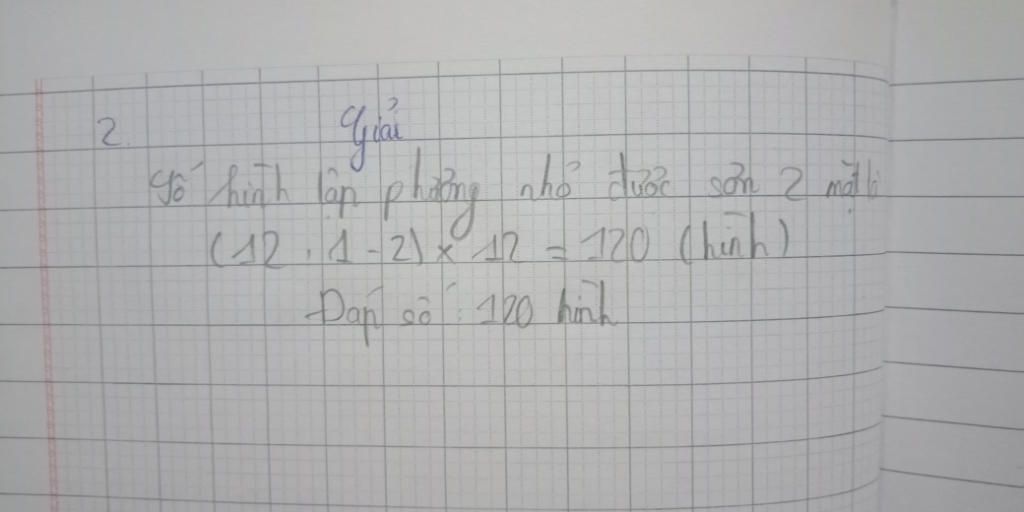 2. Giải
Số hình lập phương nhỏ được sơn 2 mặt là
(12 : 1 - 2) x 12 = 120 (hình)
Đáp số : 120 hình